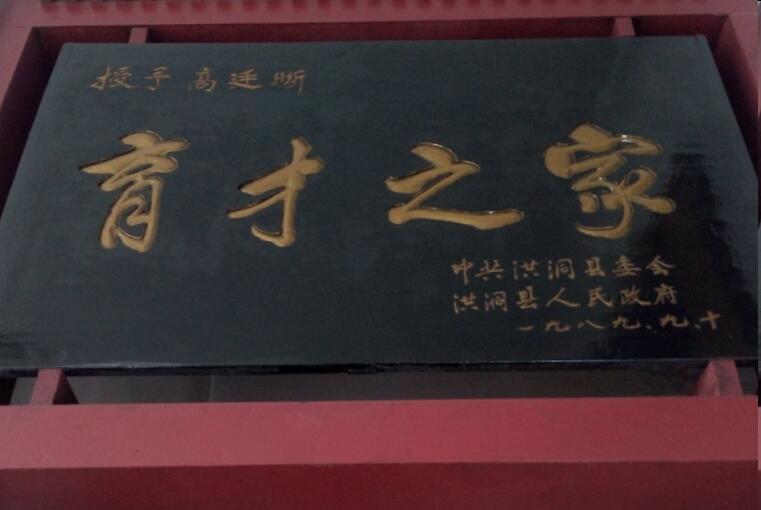 授予高廷晰
育才之家
中共洪洞县委会
洪洞县人民政府
一九八九、九、十